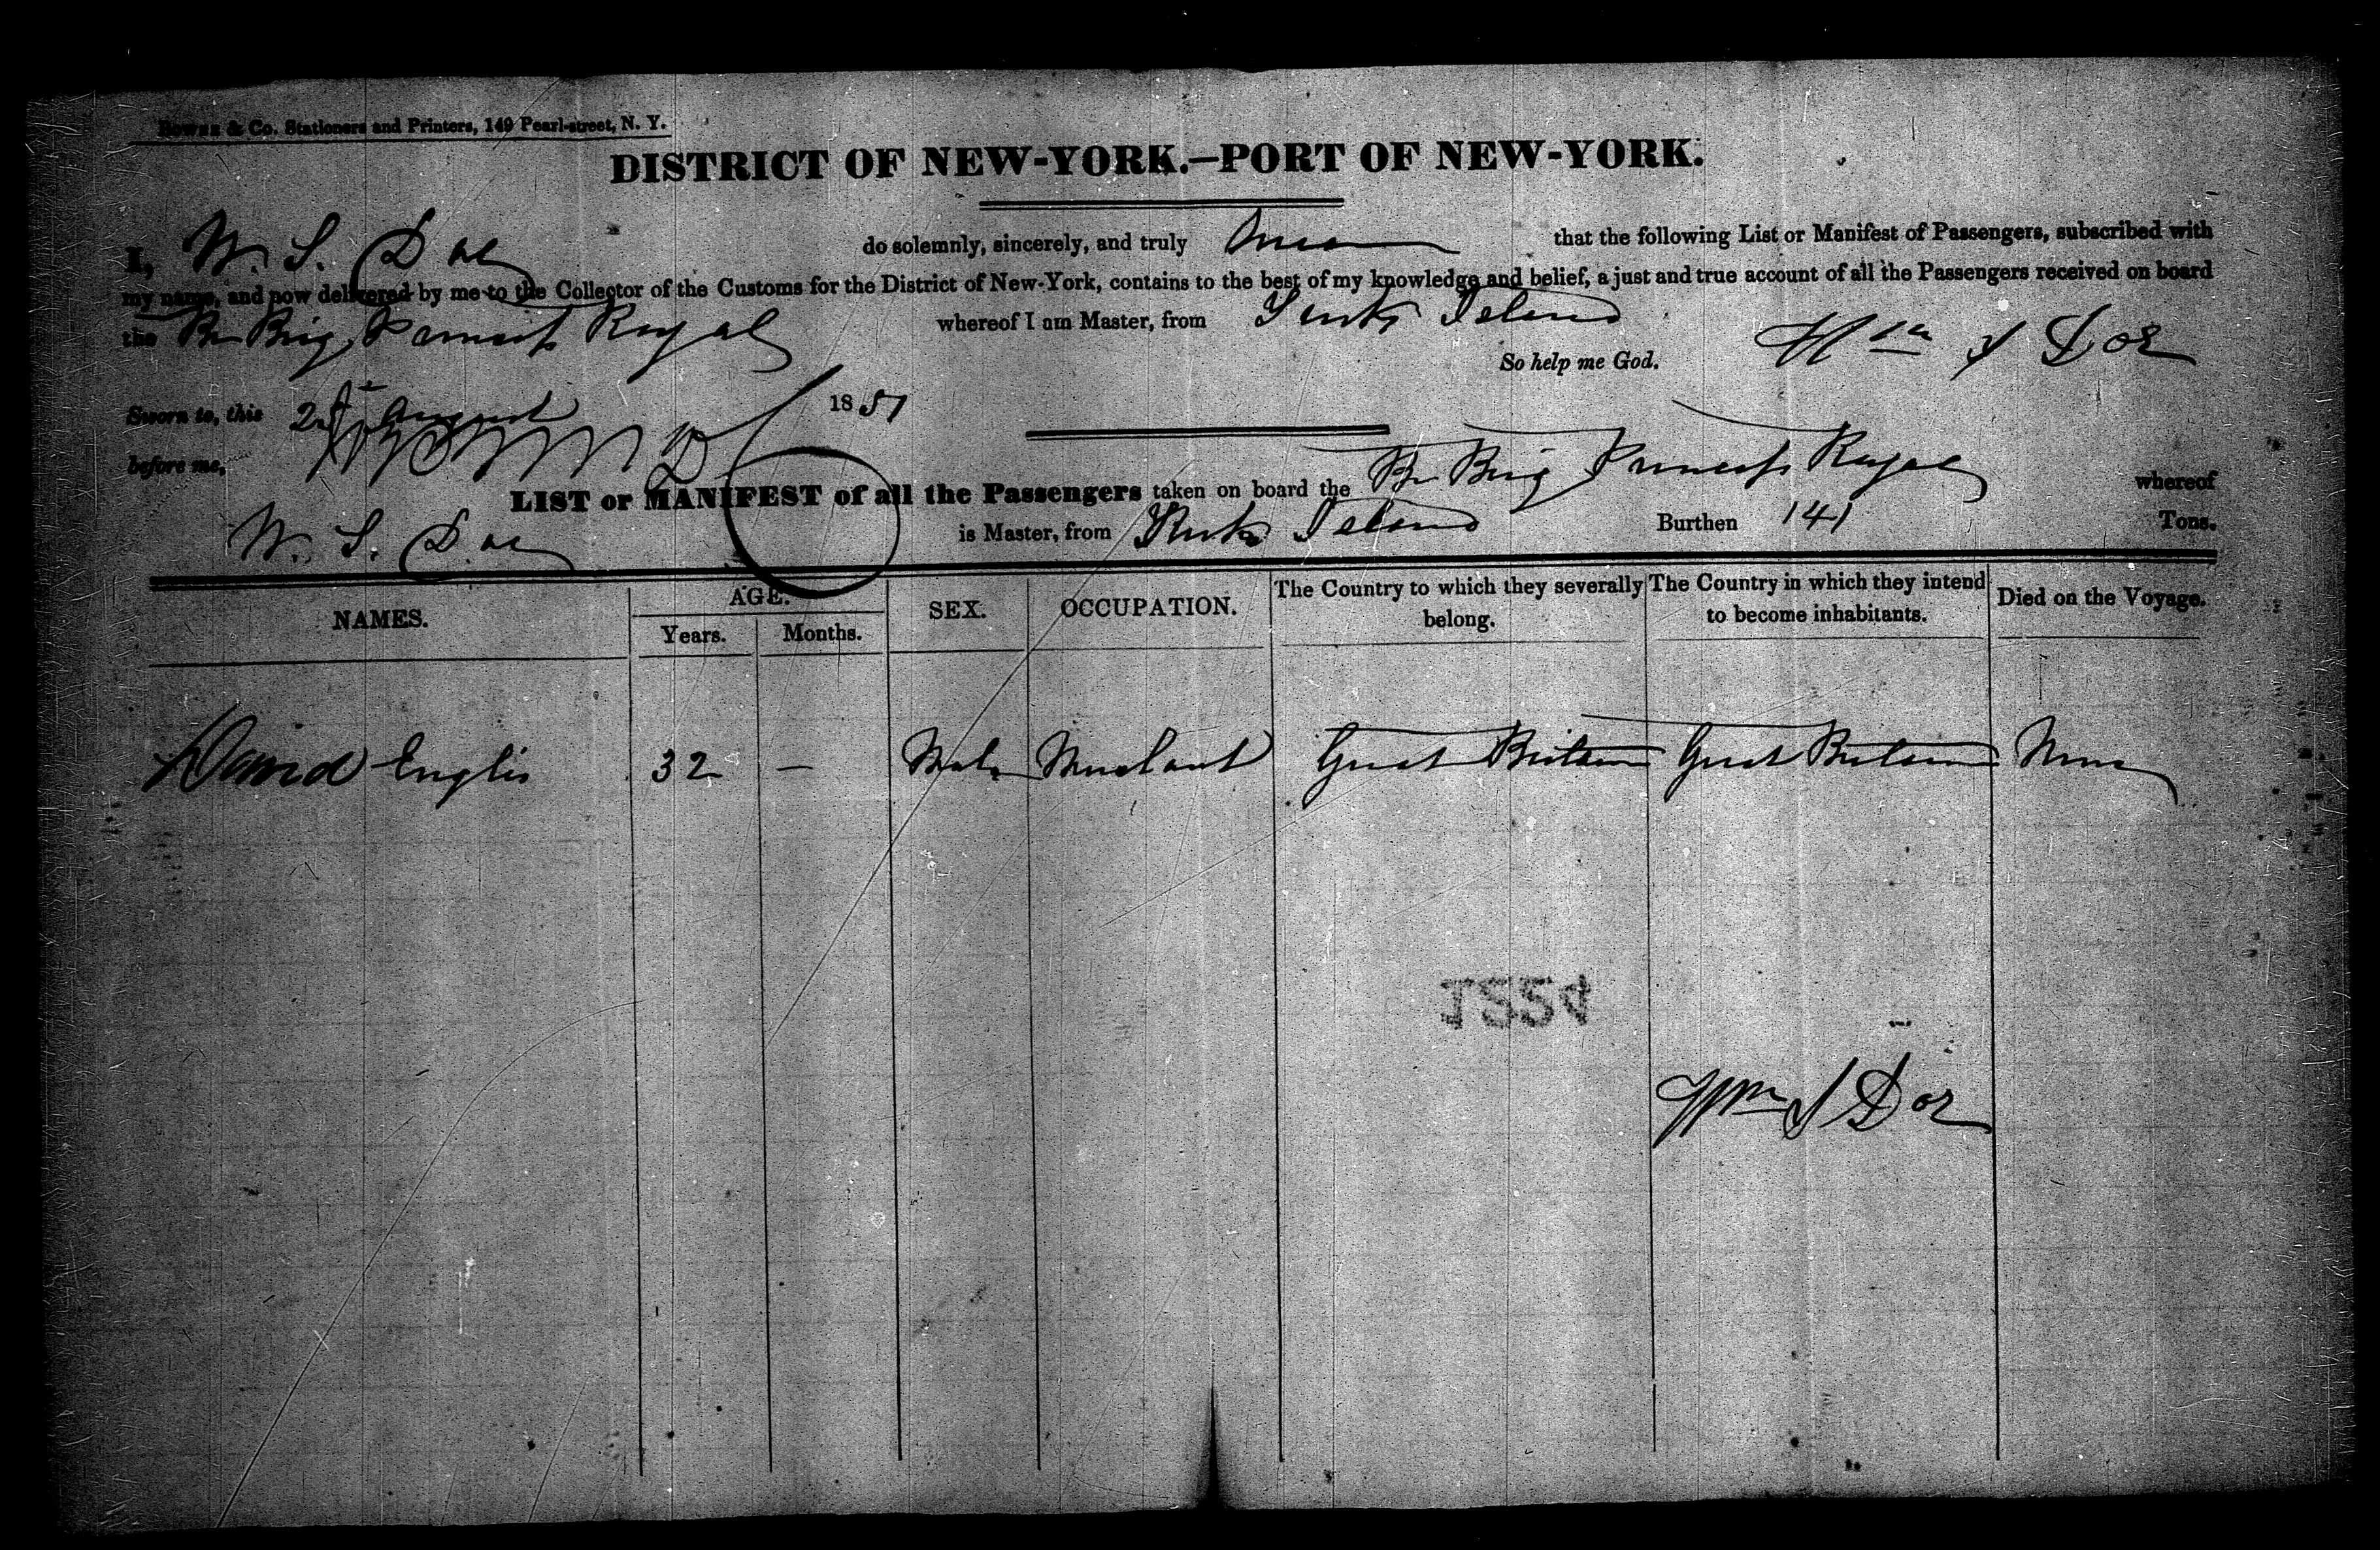 Bowne & Co. Stationers and Printers, 149 Pearl-street, N. Y.
DISTRICT OF NEW-YORK.—PORT OF NEW-YORK.
I, W. S. Doe do solemnly, sincerely, and truly swear that the following List or Manifest of Passengers, subscribed with
my name, and now delivered by me to the Collector of the Customs for the District of New-York, contains to the best of my knowledge and belief, a just and true account of all the Passengers received on board
the Br Brig Princess Royal whereof I am Master, from Turks Island
So help me God. Wm S Doe
Sworn to, this August 1851
before me,
LIST or MANIFEST of all the Passengers taken on board the Br Brig Princess Royal whereof
W. S. Doe is Master, from Turks Island Burthen 141 Tons.
NAMES. AGE. SEX. OCCUPATION. The Country to which they severally belong. The Country in which they intend to become inhabitants. Died on the Voyage.
Years. Months.
David Englis 32 — Male Merchant Great Britain Great Britain None
1554
Wm S Doe